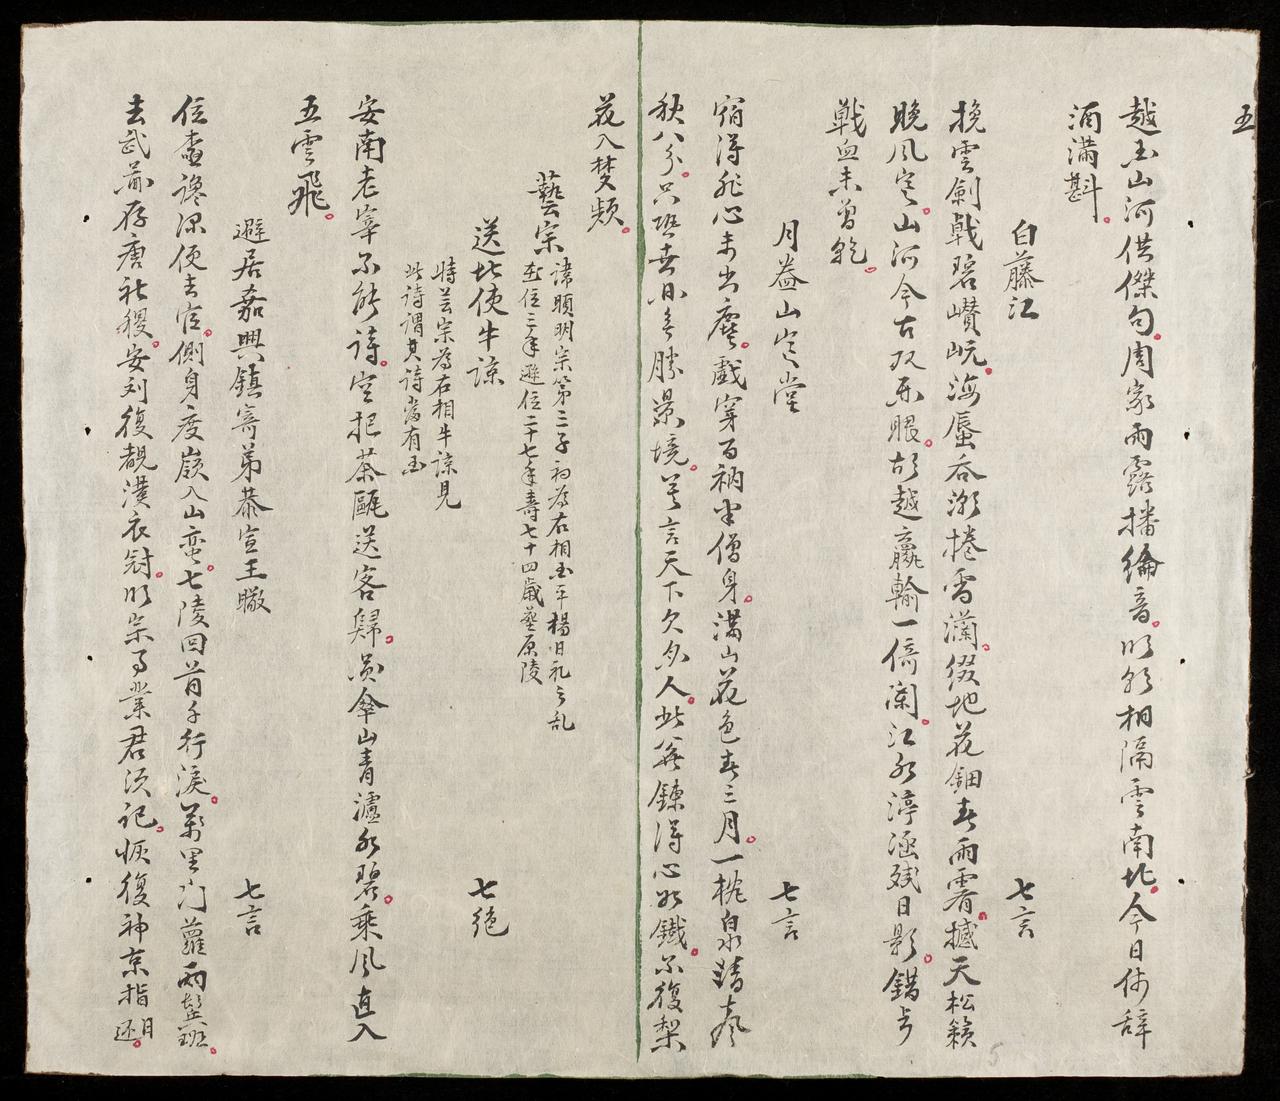 五
越玉山河供傑句周家雨露播綸音明朝相隔雲南北今日何辞
酒滿斟
白藤江 七言
挽雲劍戟碧巑岏海蜃吞潮捲雪瀾綴地花鈿春雨霽撼天松籟
晚風寒山河今古双開眼胡越贏輸一倚闌江水渟涵残日影錯訝
戰血未曾乾
月盎山寒堂 七言
宿淂形心未出塵戲穿百衲坐僧身滿山花色春三月一枕泉清夜
秋八分只恐世凡無勝景境莫言天下欠閑人此若鍊淂心如鐵不復梨
花入梦頻
藝宗 諱頵明宗第三子初為右相国平楊日礼之乱
在位三年遜位二十七年壽七十四歲塟原陵
送北使牛諒 七絕
時芸宗為右相牛諒見
此詩謂其詩當有国
安南老宰不能詩空把茶甌送客歸圓傘山青瀘水碧乗風直入
五雲飛
避居嘉興鎮寄弟恭宣王暾 七言
位極讒深便去官側身度嶺入山蛮七陵回首千行淚萬里捫蘿兩鬓班
去武圖存唐社稷安刘復覩漢衣冠明宗事業君須記恢復神京指日還